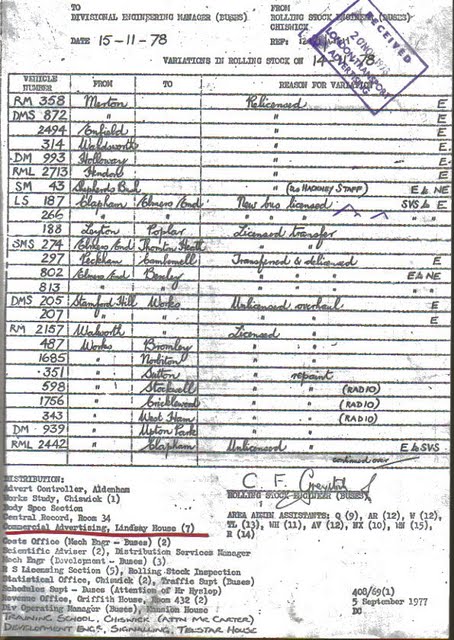 TO
DIVISIONAL ENGINEERING MANAGER (BUSES)
FROM
ROLLING STOCK ENGINEER (BUSES)
CHISWICK
DATE 15-11-78
REF:
RECEIVED
20 NOV 1978
LONDON TRANSPORT
ADVERTISING
VARIATIONS IN ROLLING STOCK ON 14-11-78
VEHICLE NUMBER FROM TO REASON FOR VARIATION
RM 358 Merton Relicensed E
DMS 872 " " E
2494 Enfield " E
314 Wandsworth " E
DM 993 Holloway " E
RML 2713 Hendon " E
SM 43 Shepherds Bush " (to HACKNEY STAFF) E to NE
LS 187 Clapham Elmers End New bus licensed SVS to E
266 " " " " " " "
188 Leyton Poplar Licensed transfer
SMS 274 Elmers End Thornton Heath " "
297 Peckham Camberwell Transferred & delicensed E
802 Elmers End Bexley " " E to NE
813 " " " " " "
DMS 205 Stamford Hill Works Unlicensed overhaul E
207 " " " " E
RM 2157 Walworth " Licensed "
487 Works Bromley " "
1685 " Norbiton " "
351 " Sutton " repaint
598 " Stockwell " " (RADIO)
1756 " Cricklewood " " (RADIO)
343 " West Ham " " (RADIO)
DM 939 " Upton Park " "
RML 2442 " Clapham Unlicensed " E to SVS
continued over
DISTRIBUTION:
Advert Controller, Aldenham
Works Study, Chiswick (1)
Body Spec Section
Central Record, Room 34
Commercial Advertising, Lindsay House (7)
Costs Office (Mech Engr - Buses) (2)
Scientific Adviser (2), Distribution Services Manager
Mech Engr (Development - Buses) (3)
R S Licensing Section (5), Rolling Stock Inspection
Statistical Office, Chiswick (2), Traffic Supt (Buses)
Schedules Supt - Buses (Attention of Mr Hyslop)
Revenue Office, Griffith House, Room 432 (2)
Div Operating Manager (Buses), Mansion House
TRAINING SCHOOL, CHISWICK (ATTN MR CARTER)
DEVELOPMENT ENGR, SIGNALLING, TELSTAR HOUSE
C. F.
ROLLING STOCK ENGINEER (BUSES)
AREA ENGINR ASSISTANTS: Q (9), AR (12), W (12),
TL (13), WH (11), AV (12), HX (10), WN (15),
R (14)
408/69(1)
5 September 1977
DC